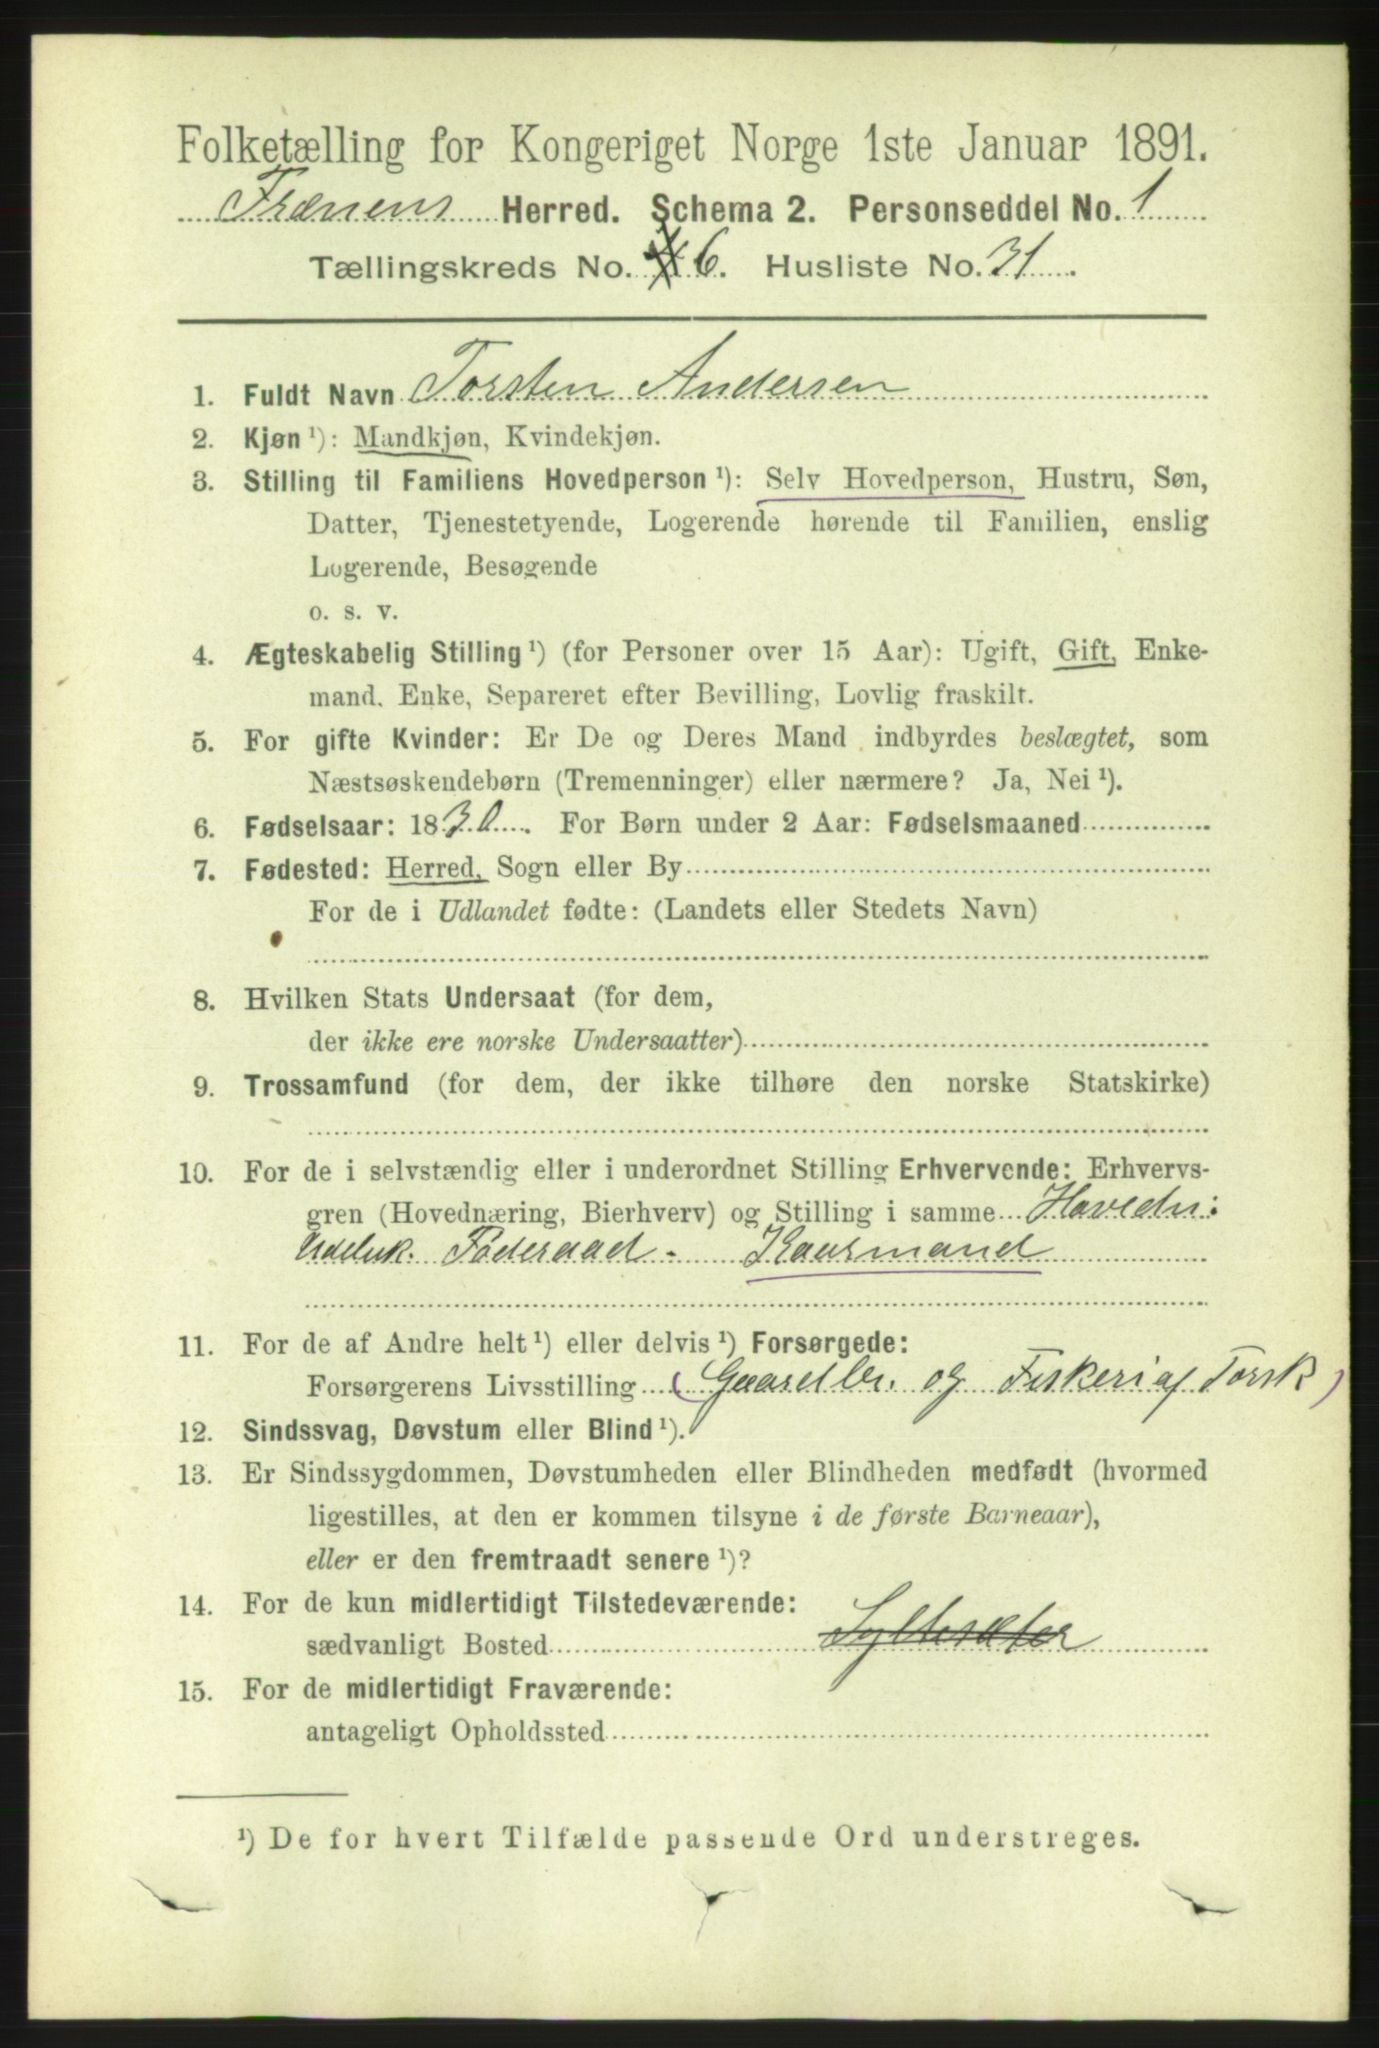 Folketælling for Kongeriget Norge 1ste Januar 1891.
Frænens Herred. Schema 2. Personseddel No. 1
Tællingskreds No. 6. Husliste No. 31.
1. Fuldt Navn Torsten Andersen
2. Kjøn ¹): Mandkjøn, Kvindekjøn.
3. Stilling til Familiens Hovedperson ¹): Selv Hovedperson, Hustru, Søn,
Datter, Tjenestetyende, Logerende hørende til Familien, enslig
Logerende, Besøgende
o. s. v.
4. Ægteskabelig Stilling ¹) (for Personer over 15 Aar): Ugift, Gift, Enke-
mand, Enke, Separeret efter Bevilling, Lovlig fraskilt.
5. For gifte Kvinder: Er De og Deres Mand indbyrdes beslægtet, som
Næstsøskendebørn (Tremenninger) eller nærmere? Ja, Nei ¹).
6. Fødselsaar: 1830. For Børn under 2 Aar: Fødselsmaaned
7. Fødested: Herred, Sogn eller By
For de i Udlandet fødte: (Landets eller Stedets Navn)
8. Hvilken Stats Undersaat (for dem,
der ikke ere norske Undersaatter)
9. Trossamfund (for dem, der ikke tilhøre den norske Statskirke)
10. For de i selvstændig eller i underordnet Stilling Erhvervende: Erhvervs-
gren (Hovednæring, Bierhverv) og Stilling i samme Hovedn:
Føderaad - Kaarmand
11. For de af Andre helt ¹) eller delvis ¹) Forsørgede:
Forsørgerens Livsstilling (Gaardbr. og Fiskeri af Torsk)
12. Sindssvag, Døvstum eller Blind ¹).
13. Er Sindssygdommen, Døvstumheden eller Blindheden medfødt (hvormed
ligestilles, at den er kommen tilsyne i de første Barneaar),
eller er den fremtraadt senere ¹)?
14. For de kun midlertidigt Tilstedeværende:
sædvanligt Bosted Syltesæter
15. For de midlertidigt Fraværende:
antageligt Opholdssted
¹) De for hvert Tilfælde passende Ord understreges.